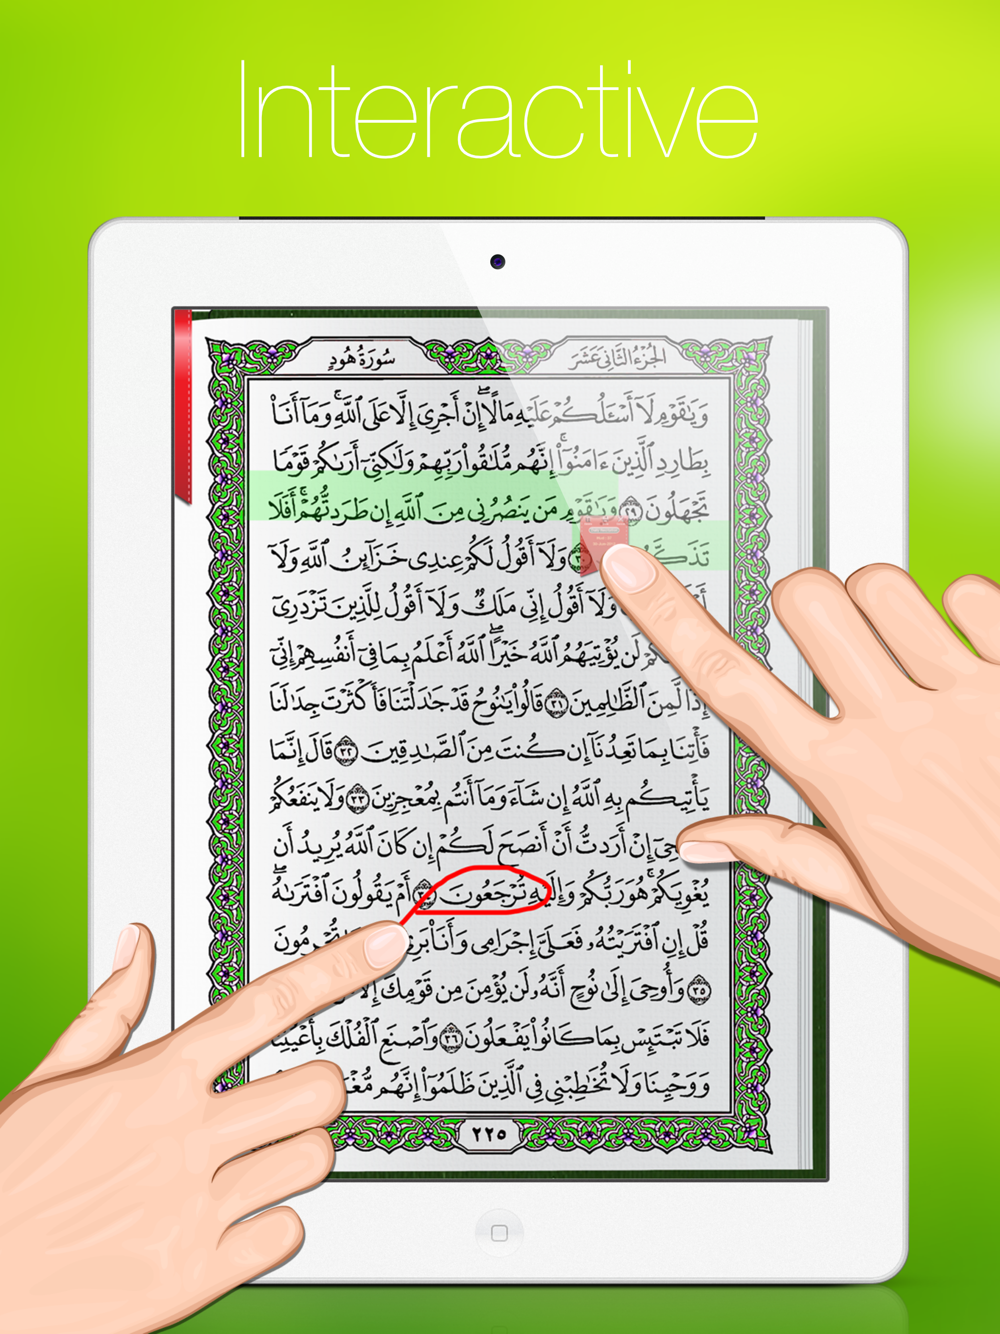 Interactive
الجُزْءُ الثَّانِي عَشَرَ
سُورَةُ هُودٍ
وَيَٰقَوْمِ لَآ أَسْـَٔلُكُمْ عَلَيْهِ مَالًا ۖ إِنْ أَجْرِىَ إِلَّا عَلَى ٱللَّهِ ۚ وَمَآ أَنَا۠
بِطَارِدِ ٱلَّذِينَ ءَامَنُوٓا۟ ۚ إِنَّهُم مُّلَٰقُوا۟ رَبِّهِمْ وَلَٰكِنِّىٓ أَرَىٰكُمْ قَوْمًا
تَجْهَلُونَ ٢٩ وَيَٰقَوْمِ مَن يَنصُرُنِى مِنَ ٱللَّهِ إِن طَرَدتُّهُمْ ۚ أَفَلَا
٣٠ وَلَآ أَقُولُ لَكُمْ عِندِى خَزَآئِنُ ٱللَّهِ وَلَآ
وَلَآ أَقُولُ إِنِّى مَلَكٌ وَلَآ أَقُولُ لِلَّذِينَ تَزْدَرِىٓ
لَن يُؤْتِيَهُمُ ٱللَّهُ خَيْرًا ۖ ٱللَّهُ أَعْلَمُ بِمَا فِىٓ أَنفُسِهِمْ ۖ إِنِّىٓ
إِذًا لَّمِنَ ٱلظَّٰلِمِينَ ٣١ قَالُوا۟ يَٰنُوحُ قَدْ جَٰدَلْتَنَا فَأَكْثَرْتَ جِدَٰلَنَا
فَأْتِنَا بِمَا تَعِدُنَآ إِن كُنتَ مِنَ ٱلصَّٰدِقِينَ ٣٢ قَالَ إِنَّمَا
يَأْتِيكُم بِهِ ٱللَّهُ إِن شَآءَ وَمَآ أَنتُم بِمُعْجِزِينَ ٣٣ وَلَا يَنفَعُكُمْ
إِنْ أَرَدتُّ أَنْ أَنصَحَ لَكُمْ إِن كَانَ ٱللَّهُ يُرِيدُ أَن
يُغْوِيَكُمْ ۚ هُوَ رَبُّكُمْ وَإِلَيْهِ تُرْجَعُونَ ٣٤ أَمْ يَقُولُونَ ٱفْتَرَىٰهُ ۖ
قُلْ إِنِ ٱفْتَرَيْتُهُۥ فَعَلَىَّ إِجْرَامِى وَأَنَا۠
٣٥ وَأُوحِىَ إِلَىٰ نُوحٍ أَنَّهُۥ لَن يُؤْمِنَ مِن قَوْمِكَ
فَلَا تَبْتَئِسْ بِمَا كَانُوا۟ يَفْعَلُونَ ٣٦ وَٱصْنَعِ ٱلْفُلْكَ بِأَعْيُنِنَا
وَوَحْيِنَا وَلَا تُخَٰطِبْنِى فِى ٱلَّذِينَ ظَلَمُوٓا۟ ۚ إِنَّهُم
٢٢٥